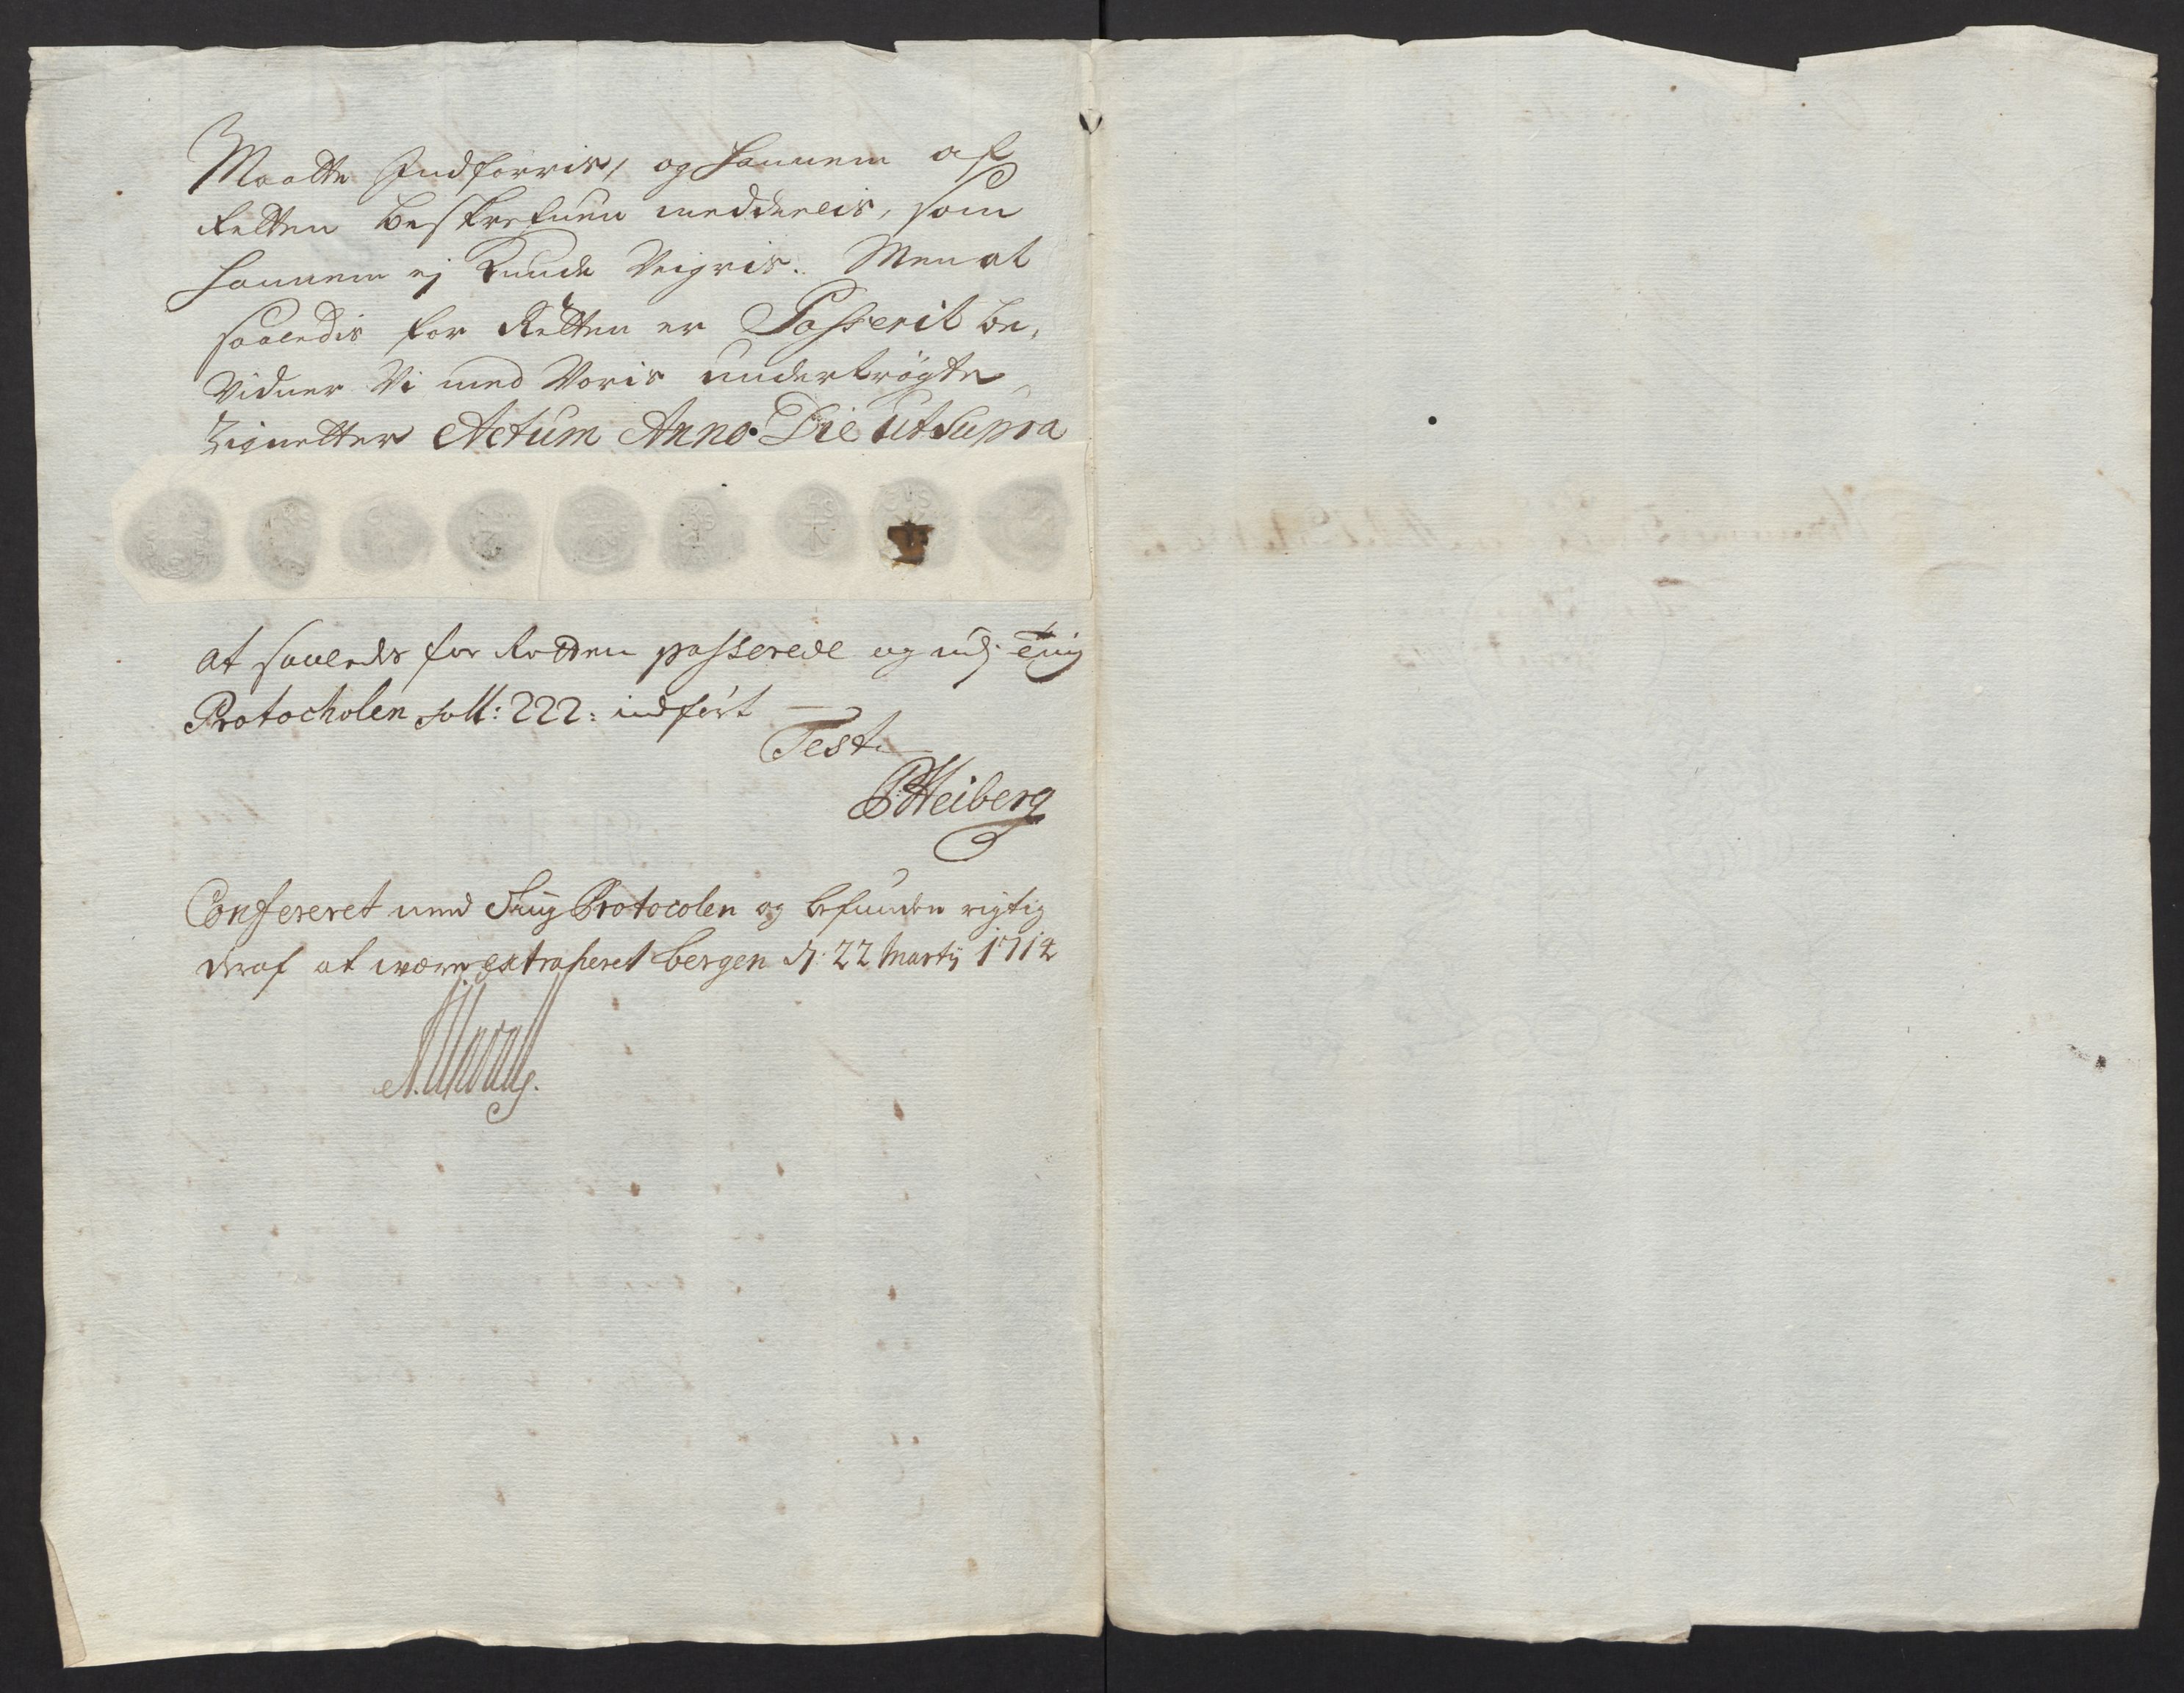 Maatte Indførris, og hannem af
Retten beskrefuen meddeelis, som
hannem ej kunde Veigris. Men at
saaledis for Retten er Passerit be,
Vidner Vi med Voris undertrøgte
Zignetter Actum Anno Die ut Supra
at saaledes for Retten passerede og udj Ting
Protocholen foll: 222: indført
Test
P Heiberg
Confereret med Ting Protocolen og befunden rigtig
deraf at were extraheret bergen d: 22 Martij 1714